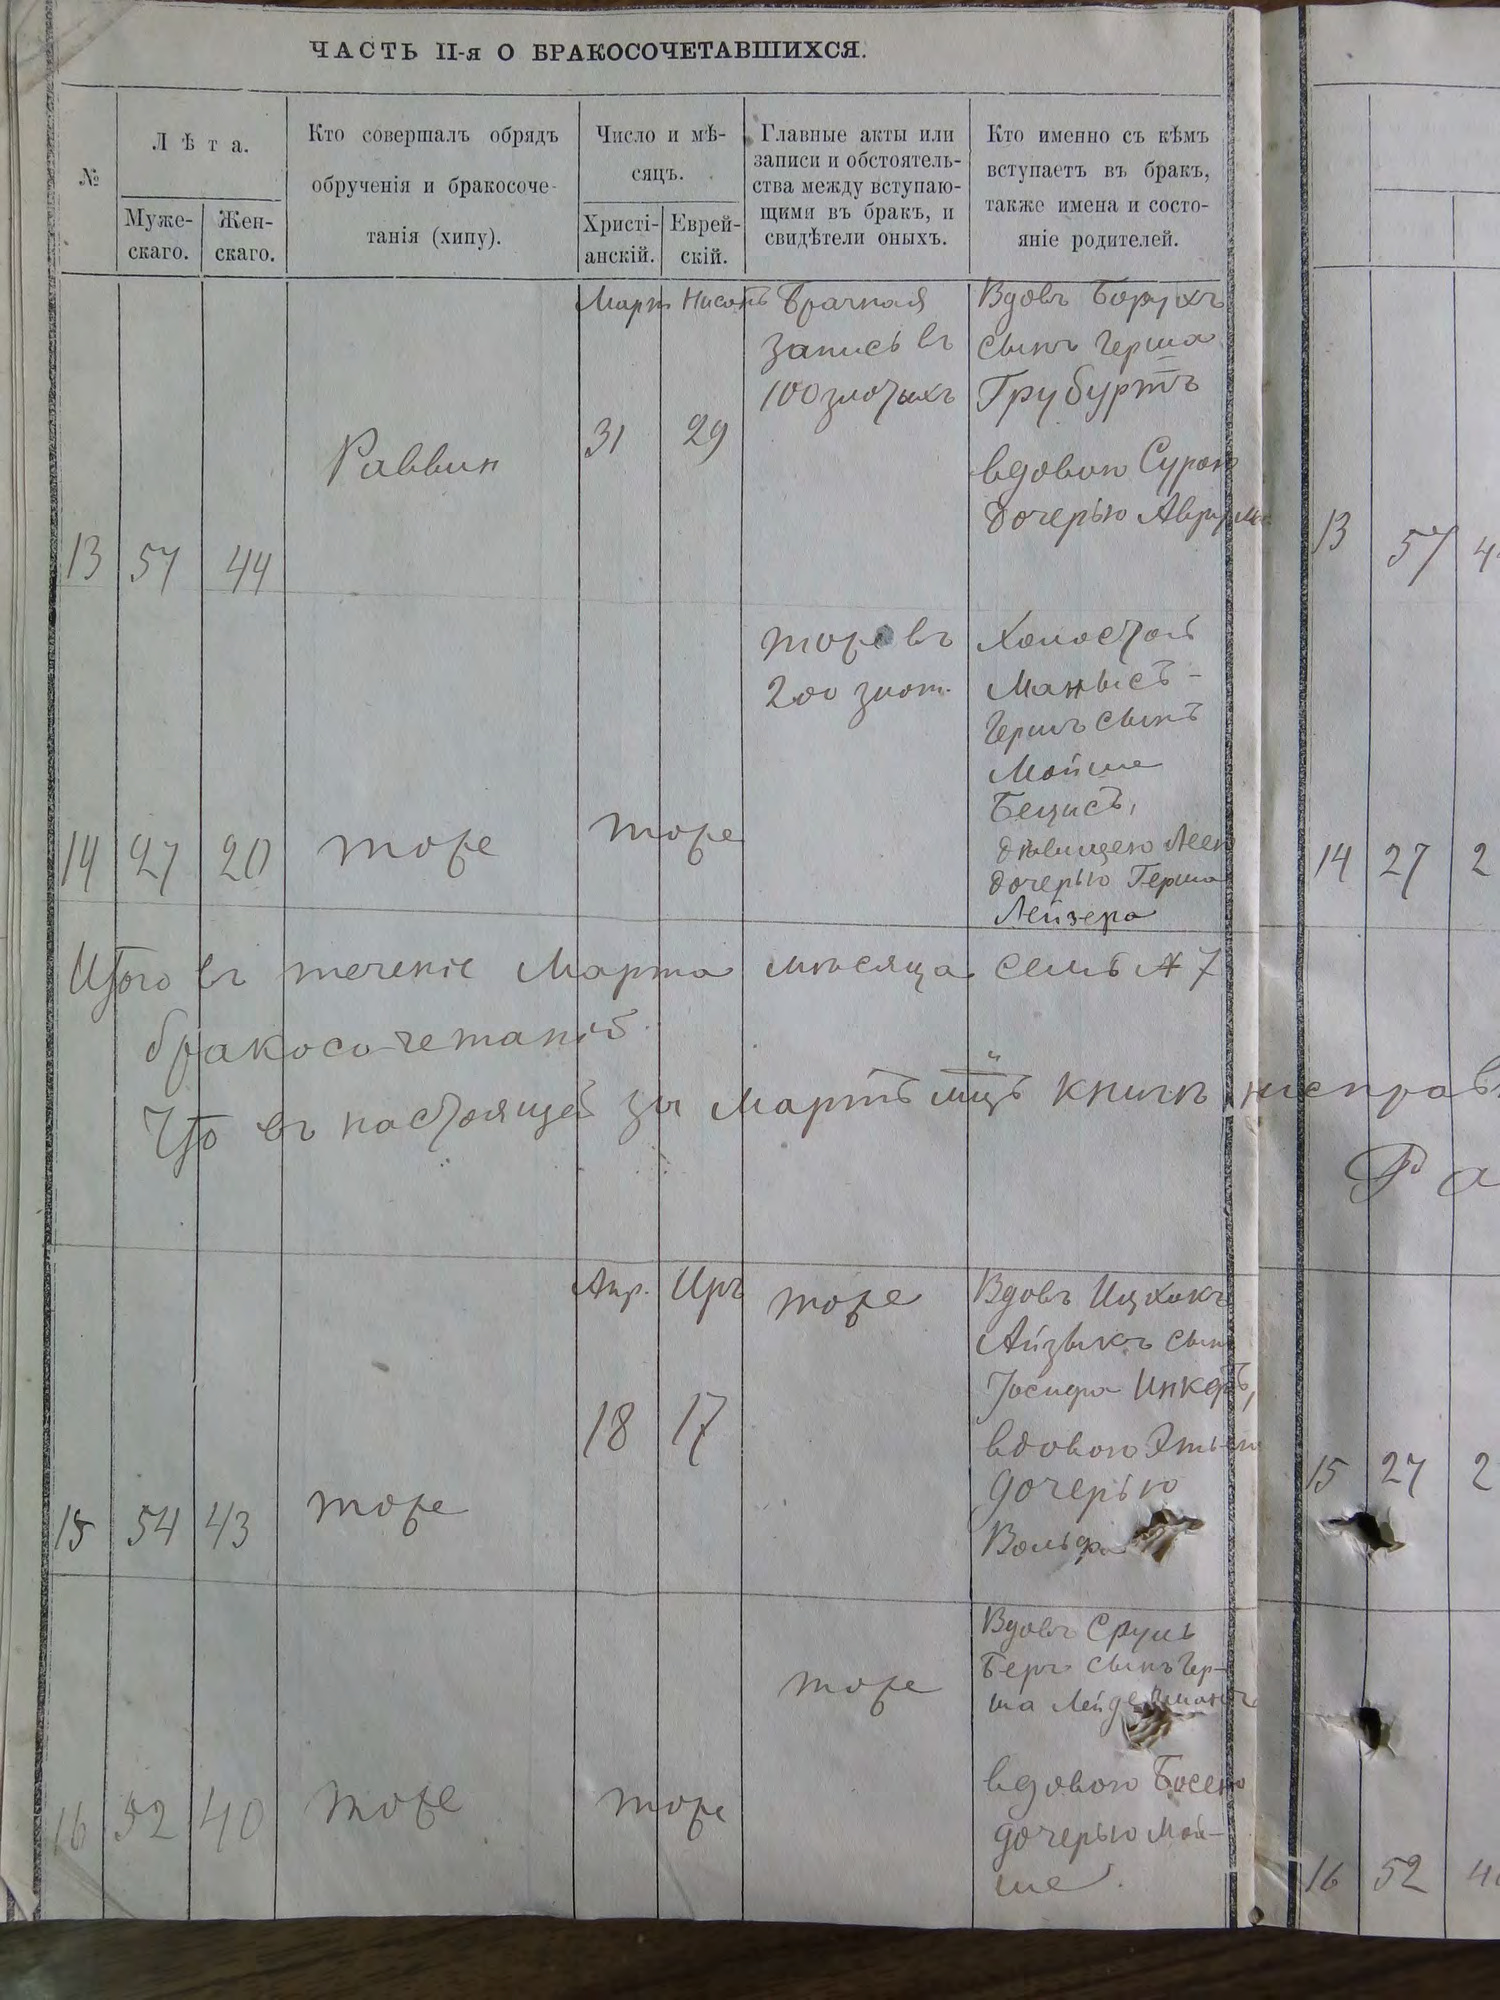 ЧАСТЬ II-я О БРАКОСОЧЕТАВШИХСЯ.
№
Лѣта.
Муже-
скаго.
Жен-
скаго.
Кто совершалъ обрядъ
обрученія и бракосоче-
танія (хипу).
Число и мѣ-
сяцъ.
Христі-
анскій.
Еврей-
скій.
Главные акты или
записи и обстоятель-
ства между вступаю-
щими въ бракъ, и
свидѣтели оныхъ.
Кто именно съ кѣмъ
вступаетъ въ бракъ,
также имена и состо-
яніе родителей.
13
57
44
Раввин
Март
31
Нисанъ
29
Брачная
запись въ
100 злотыхъ
Вдовъ Борухъ
сынъ Герша
Грубуртъ
вдовою Сурою
дочерью Аврума
14
27
20
тоже
тоже
тоже въ
200 злот.
Холостой
Манысъ-
Гершъ сынъ
Мойше
Бецисъ,
дѣвицею Леею
дочерью Герша
Лейзера
Итого въ теченіе Марта мѣсяца семь № 7
бракосочетаній.
Что въ настоящей за Мартъ мцъ книгѣ
15
54
43
тоже
Апр.
18
Иръ
17
тоже
Вдовъ Ицхокъ
Айзыкъ сынъ
Іосифа Инкеръ,
вдовою
дочерью
Вольфа
16
52
40
тоже
тоже
тоже
Вдовъ Сруль
Беръ сынъ Гер-
ша Лейдерманъ
вдовою Босею
дочерью Мой-
ше.
13
57
14
27
2
Ра
15
27
2
16
52